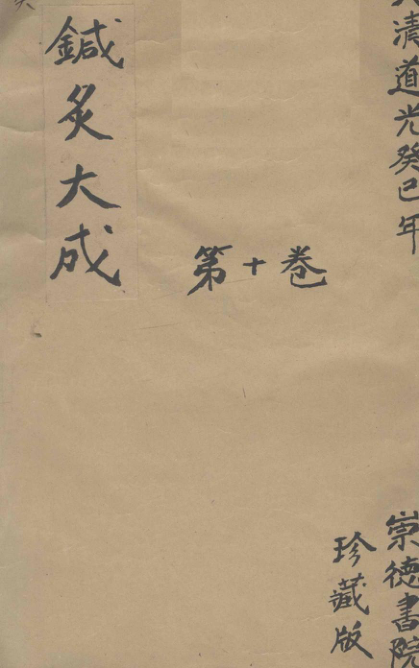 大清道光癸巳年
崇德書院
珍藏版
第十卷
鍼灸大成